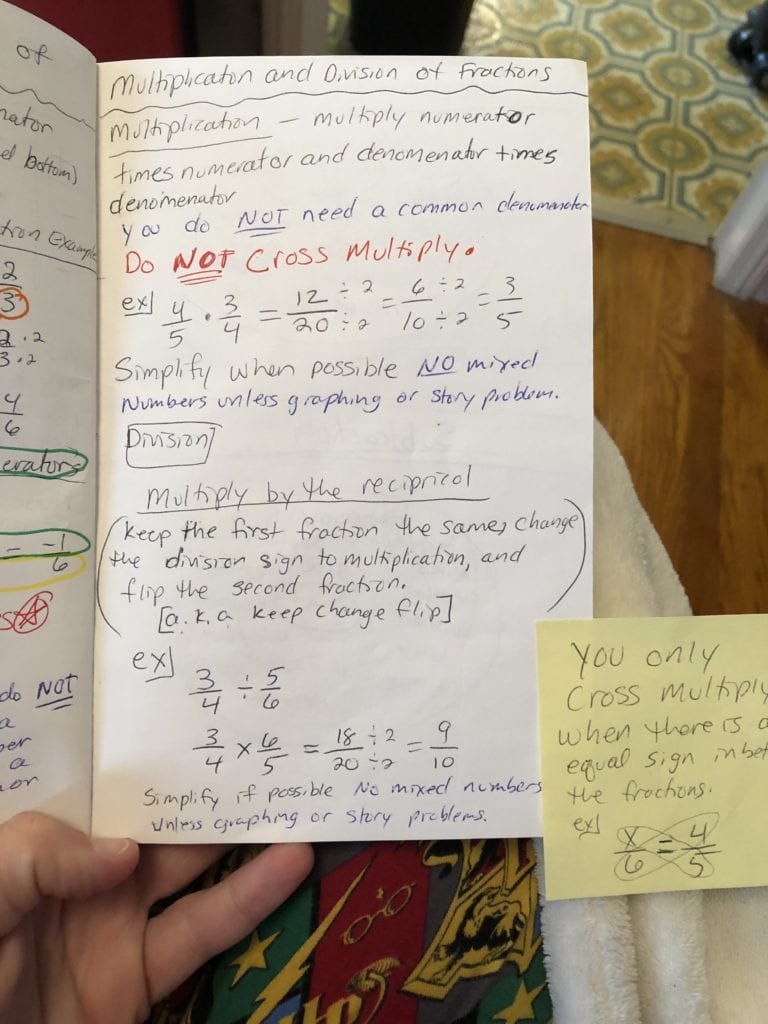 of
nator
el bottom)
tion Example
2
3
2 · 2
3 · 2
4
6
erators
= -1
6
do NOT
a
per
a
or
Multiplicaton and Division of Fractions
Multiplication – multiply numerator
times numerator and denomenator times
denomenator
you do NOT need a common denomenator
Do NOT Cross Multiply.
ex] 4/5 · 3/4 = 12/20 ÷ 2/÷ 2 = 6/10 ÷ 2/÷ 2 = 3/5
Simplify when possible NO mixed
Numbers unless graphing or story problem.
Division
Multiply by the reciprical
(keep the first fraction the same, change
the division sign to multiplication, and
flip the second fraction.
[a.k.a keep change flip])
ex]
3/4 ÷ 5/6
3/4 × 6/5 = 18/20 ÷2/÷2 = 9/10
Simplify if possible No mixed numbers
unless graphing or story problems.
You only
Cross multiply
when there is a
equal sign inbet
the fractions.
ex]
x/6 = 4/5